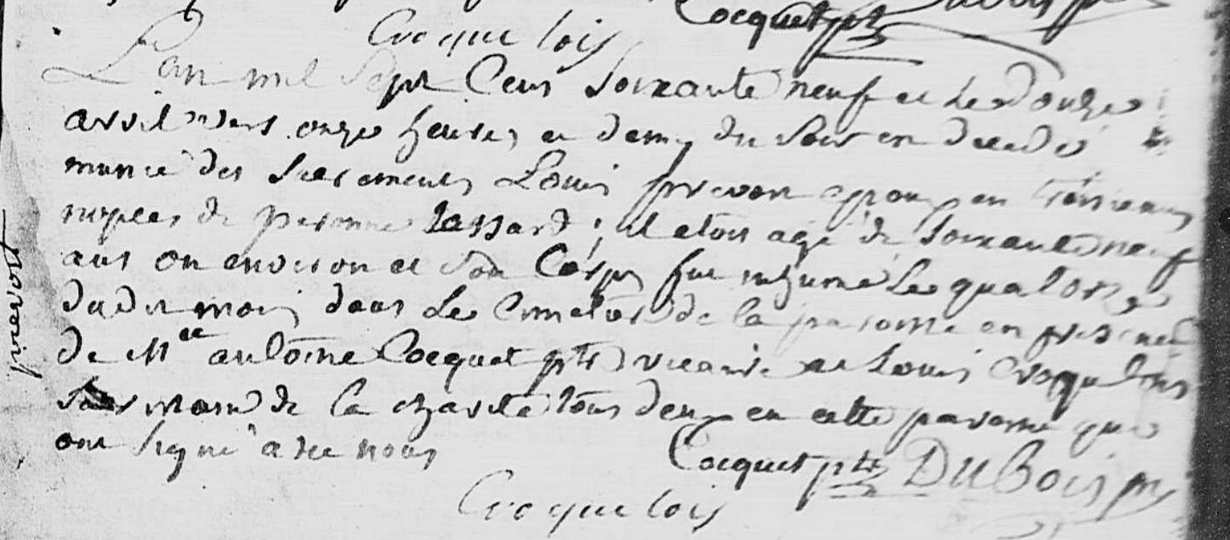 Cocquet ptr
Croquelois
L'an mil sept cens soixante neuf et le douze
avril vers onze heures et demy du soir en decedé
munie des sacremens Louis prevost epoux en troisiemes
nopces de peronne lassard ; il etoit agé de soixante neuf
ans ou environ et son corps fut inhumé le quatorze
dudit mois dans le cimetiere de la paroisse en presence
de Mtre antoine Cocquet ptre vicaire et Louis Croquelois
de la charité tous deux en cette paroisse qui
ont signé avec nous
Cocquet ptr DuBois
Croquelois
prevost